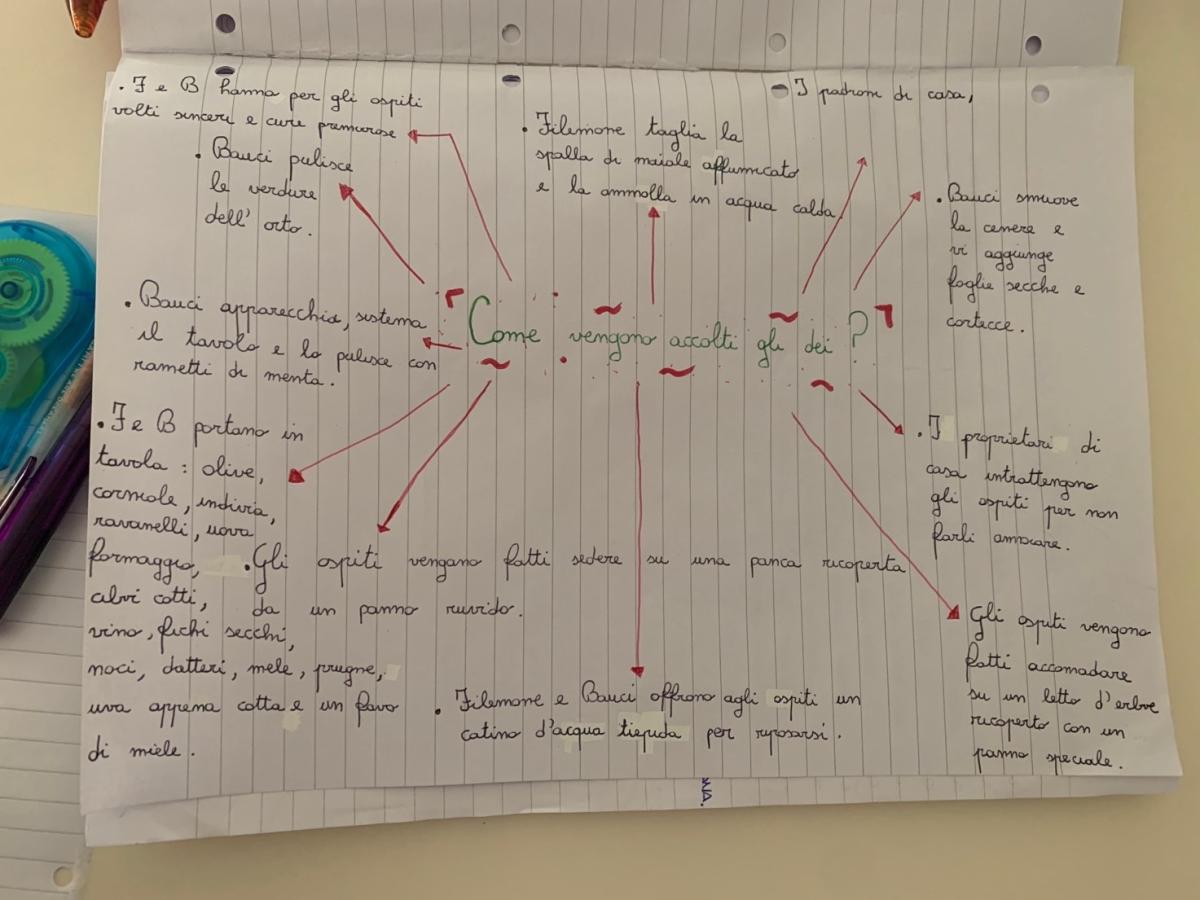 . F e B hanno per gli ospiti
volti sinceri e cure premurose
. Bauci pulisce
le verdure
dell' orto.
. Filemone taglia la
spalla di maiale affumicato
e la ammolla in acqua calda
I padroni di casa,
. Bauci smuove
la cenere e
vi aggiunge
foglie secche e
cortecce.
. Bauci apparecchia, sistema
il tavolo e lo pulisce con
rametti di menta.
Come vengono accolti gli dei?
. F e B portano in
tavola : olive,
corniole, indivia,
ravanelli, uova
formaggio,
cibi cotti,
vino, fichi secchi,
noci, datteri, mele, prugne,
uva appena colta e un favo
di miele.
. Gli ospiti vengono fatti sedere su una panca ricoperta
da un panno ruvido.
. Filemone e Bauci offrono agli ospiti un
catino d'acqua tiepida per riposarsi.
. I proprietari di
casa intrattengono
gli ospiti per non
farli annoiare.
Gli ospiti vengono
fatti accomodare
su un letto d'erbe
ricoperto con un
panno speciale.